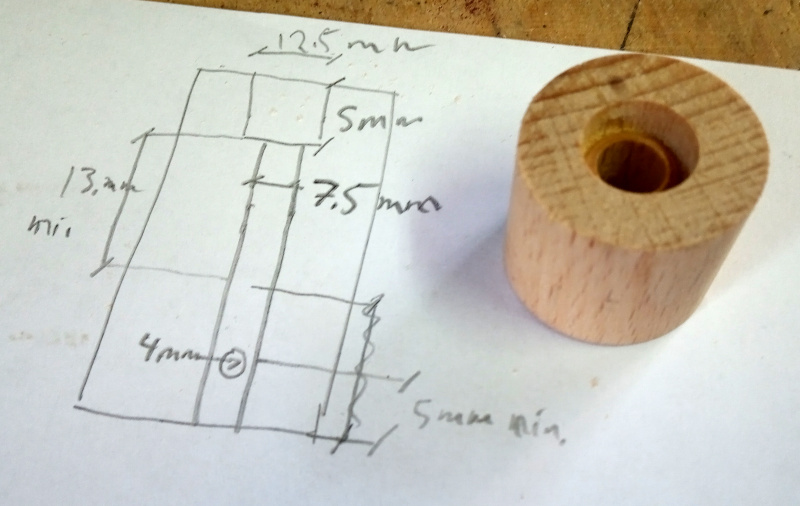 12.5mm
5mm
13.mm
min
7.5mm
4mm
5mm min.